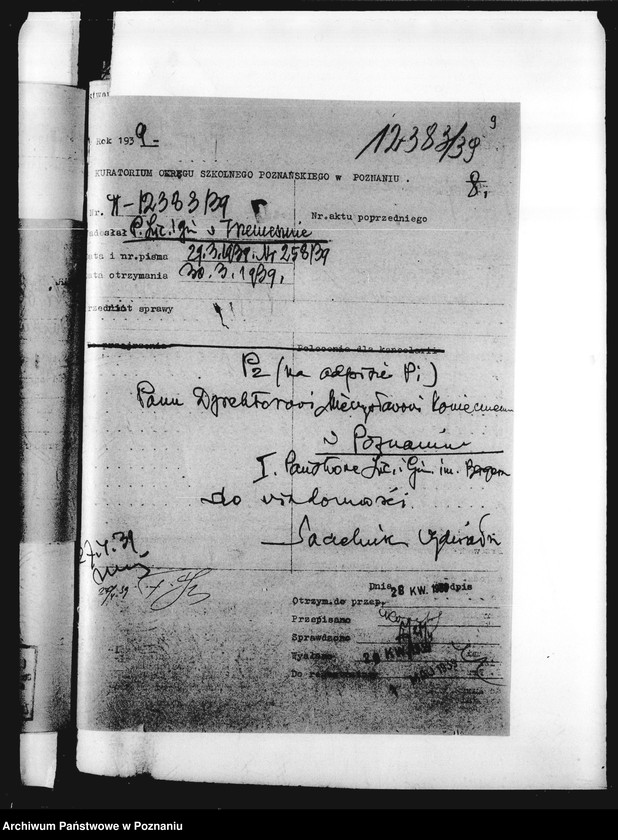 9
Rok 1939
12383/39
KURATORIUM OKRĘGU SZKOLNEGO POZNAŃSKIEGO w POZNANIU.
8.
Nr. II-12383/39
Nr.aktu poprzedniego
P. Lic. i Gim. w Trzemesznie
i nr.pisma 29.3.1939. Nr 258/39
otrzymania 30.3.1939.
sprawy
Polecenia dla kancelarii
Pz (na odpisie Pi)
Panu Dyrektorowi Mieczysławowi Koniecznemu
w Poznaniu
I. Państwowe Lic. i Gim. im. Bergera
do wiadomości.
Naczelnik Wydziału
27.4.39
Dnia 28 KW. 1939 Podpis
Otrzym.do przep.
Przepisano
Sprawdzono
Wysłano 28 KW. 1939
Do 1 MAJ 1939
Archiwum Państwowe w Poznaniu